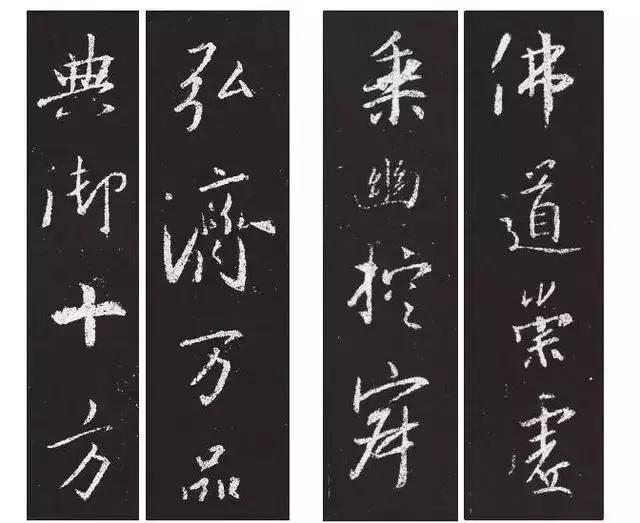 佛道崇虚
乘幽控寂
弘济万品
典御十方